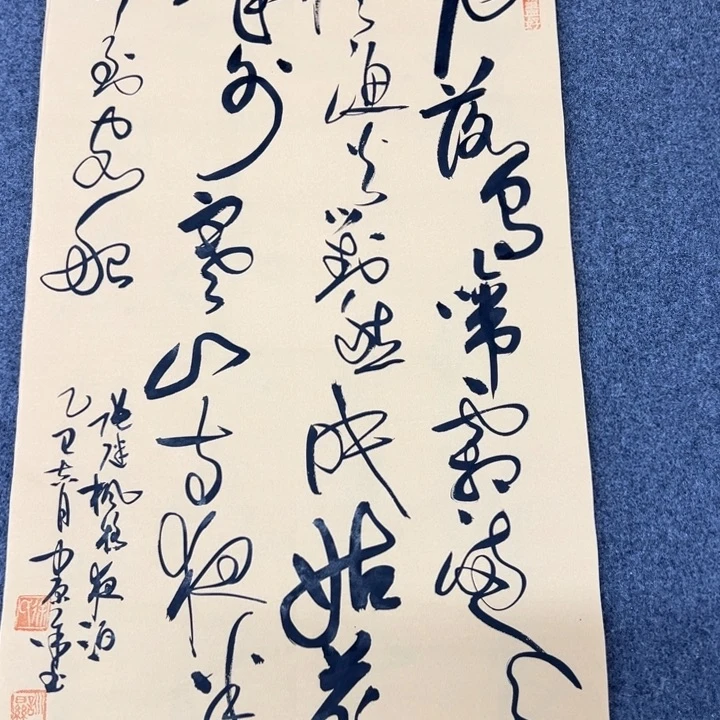 月落烏啼霜滿天
漁火對愁眠姑蘇
城外寒山寺夜半
到客船
張継枫橋夜泊
乙巳六月中原